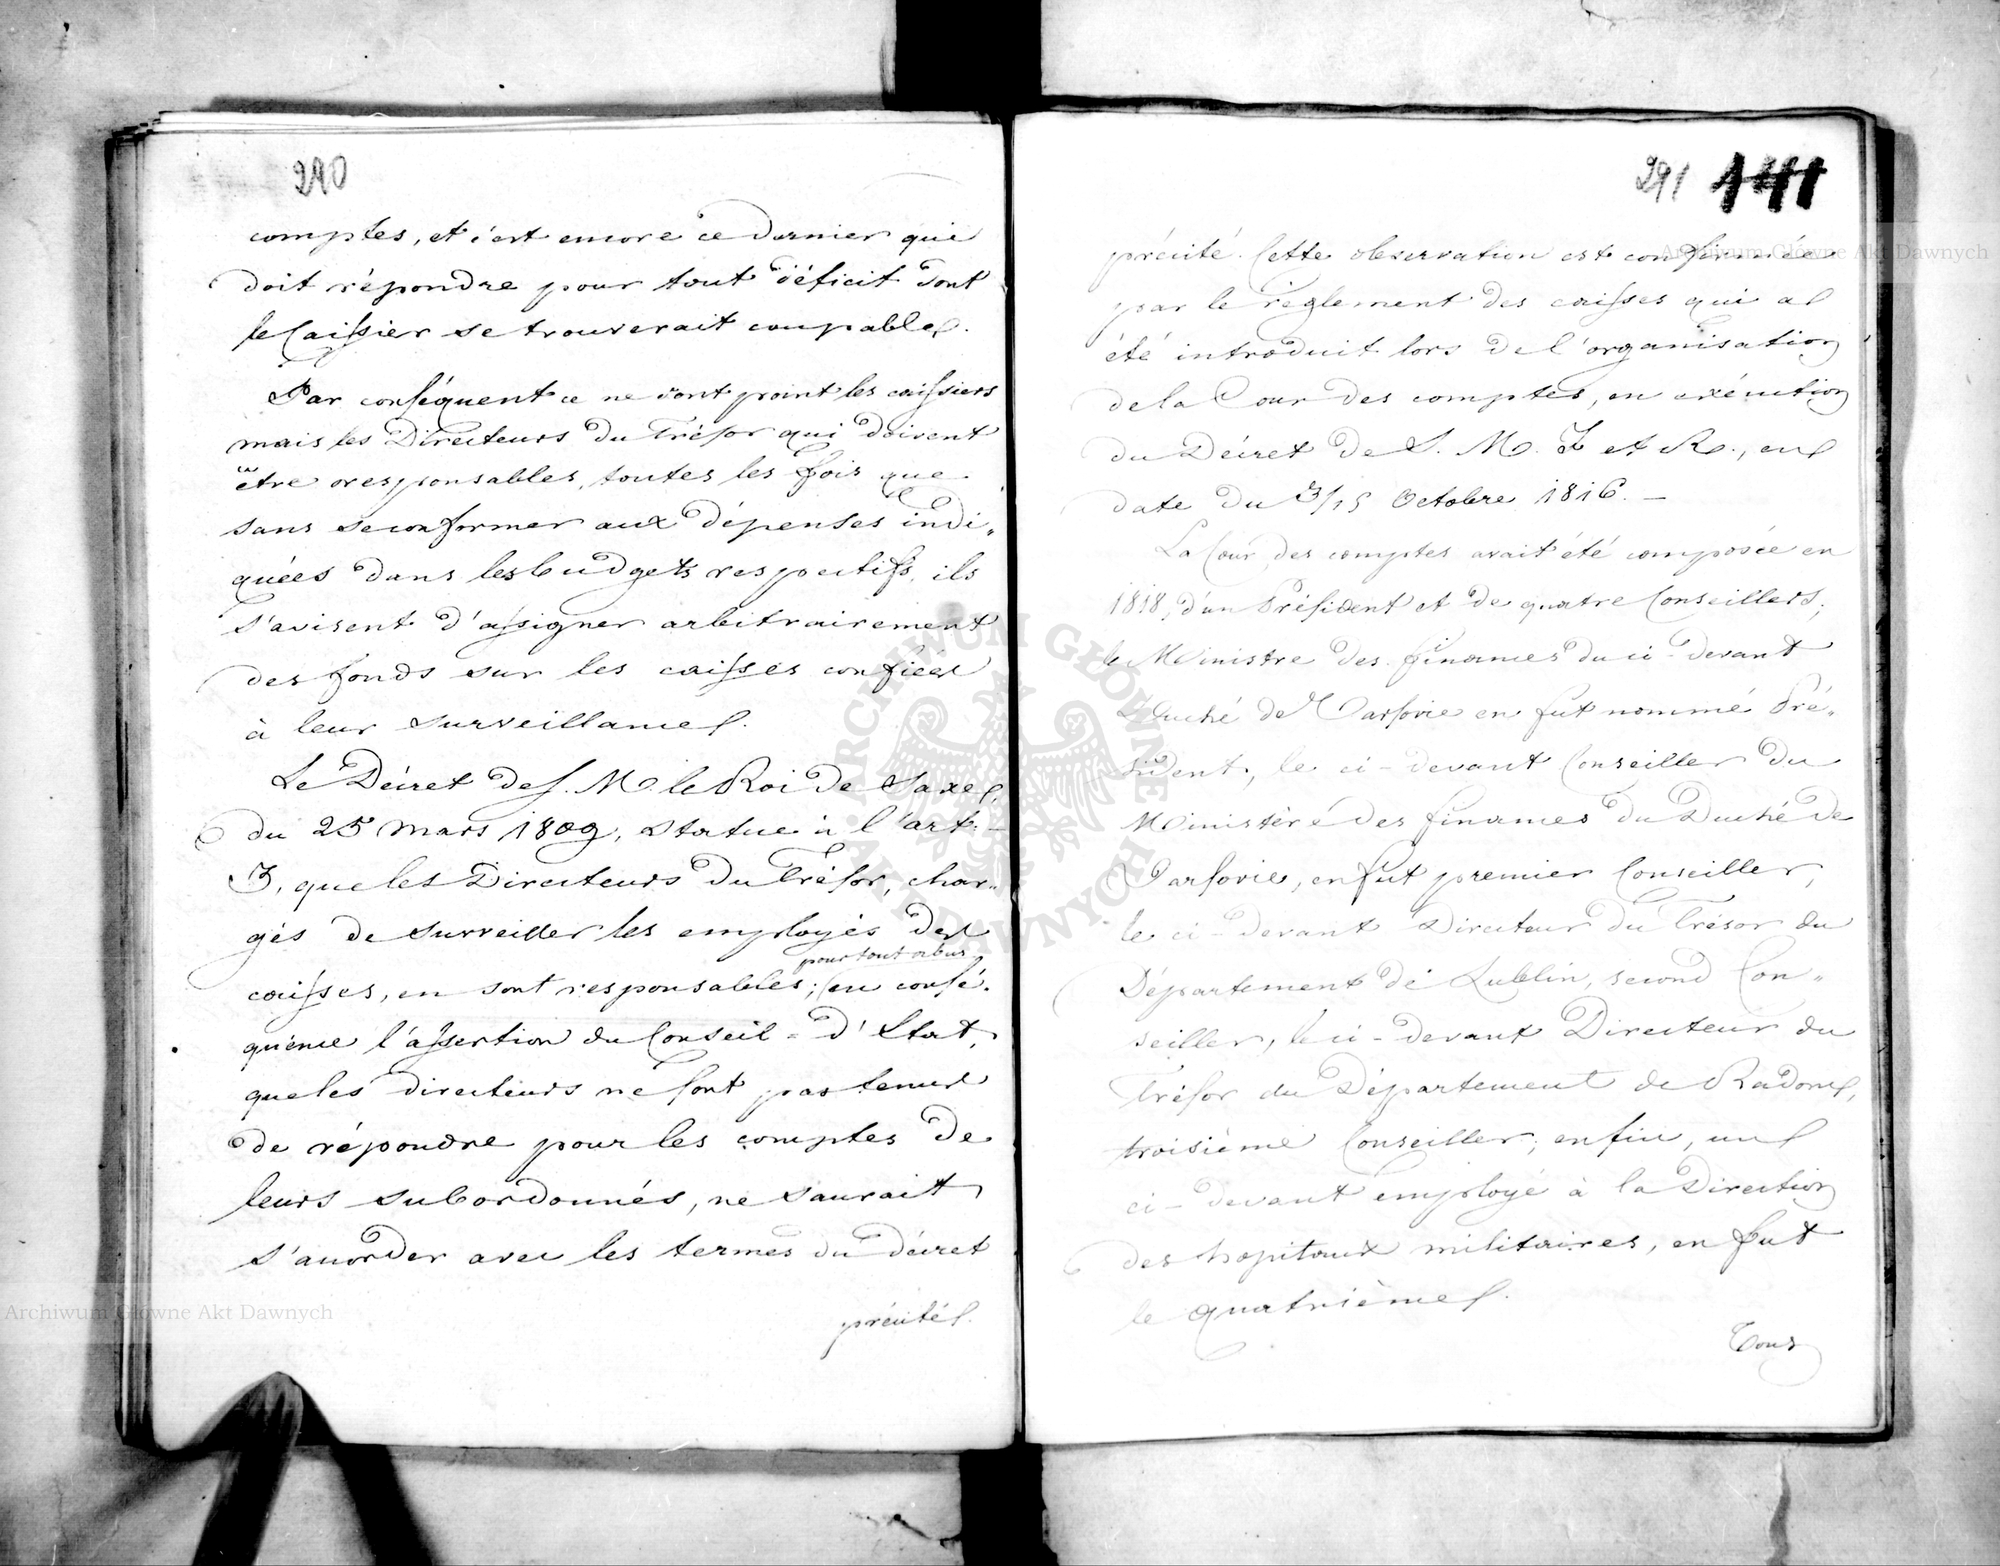 290
comptes, et c'est encore ce dernier qui
doit répondre pour tout déficit dont
le Caissier se trouverait coupable.
Par conséquent ce ne sont point les caissiers
mais les Directeurs du Trésor qui doivent
être responsables, toutes les fois que
sans se conformer aux dépenses indi„
quées dans les budgets respectifs, ils
s'avisent d'assigner arbitrairement
des fonds sur les caisses confiées
à leur surveillance.
Le Décret de S. M. le Roi de Saxe,
du 25 mars 1809, statue à l'art.
3, que les Directeurs du Trésor, char„
gés de surveiller les employés des
pour tout abus
caisses, en sont responsables; en consé.
quence l'assertion du Conseil-d'Etat,
que les directeurs ne sont pas tenus
de répondre pour les comptes de
leurs subordonnés, ne saurait
s'accorder avec les termes du décret
précité.
291 141
précité. Cette observation est confirmée
par le règlement des caisses qui a
été introduit lors de l'organisation
de la Cour des comptes, en exécution
du Décret de S. M. I et R., en
date du 3/15 Octobre 1816. —
La Cour des comptes avait été composée en
1818, d'un Président et de quatre Conseillers;
le Ministre des finances du ci-devant
Duché de Varsovie en fut nommé Pré„
sident, le ci-devant Conseiller du
Ministère des finances du Duché de
Varsovie, en fut premier Conseiller,
le ci-devant Directeur du Trésor du
Département de Lublin, second Con„
seiller, le ci-devant Directeur du
Trésor du Département de Radom,
troisième Conseiller; enfin, un
ci-devant employé à la Direction
des hopitaux militaires, en fut
le quatrième.
Tous
Archiwum Główne Akt Dawnych
Archiwum Główne Akt Dawnych
ARCHIWUM GŁÓWNE AKT DAWNYCH